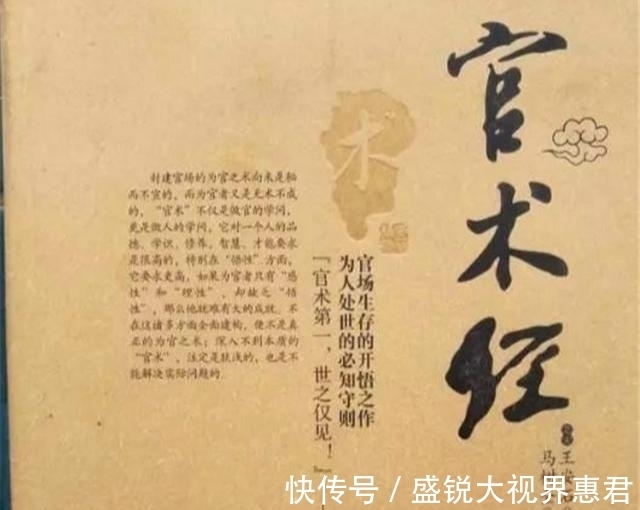 官术经
官场生存的开悟之作
为人处世的必知守则
「官术第一，世之仅见！」
封建官场的为官之术向来是秘
而不宣的，而为官者又是无术不成
的，“官术”不仅是做官的学问，
更是做人的学问，它对一个人的品
德、学识、修养、智慧、才能要求
是很高的，特别在“悟性”方面，
它要求更高，如果为官者只有“感
性”和“理性”，却缺乏“悟
性”，那么他就难有大的成就。不
在这诸多方面全面建构，便不是真
正的为官之术；深入不到本质的
“官术”，注定是肤浅的，也是不
能解决实际问题的
术
王
马树
快传号／盛锐大视界惠君